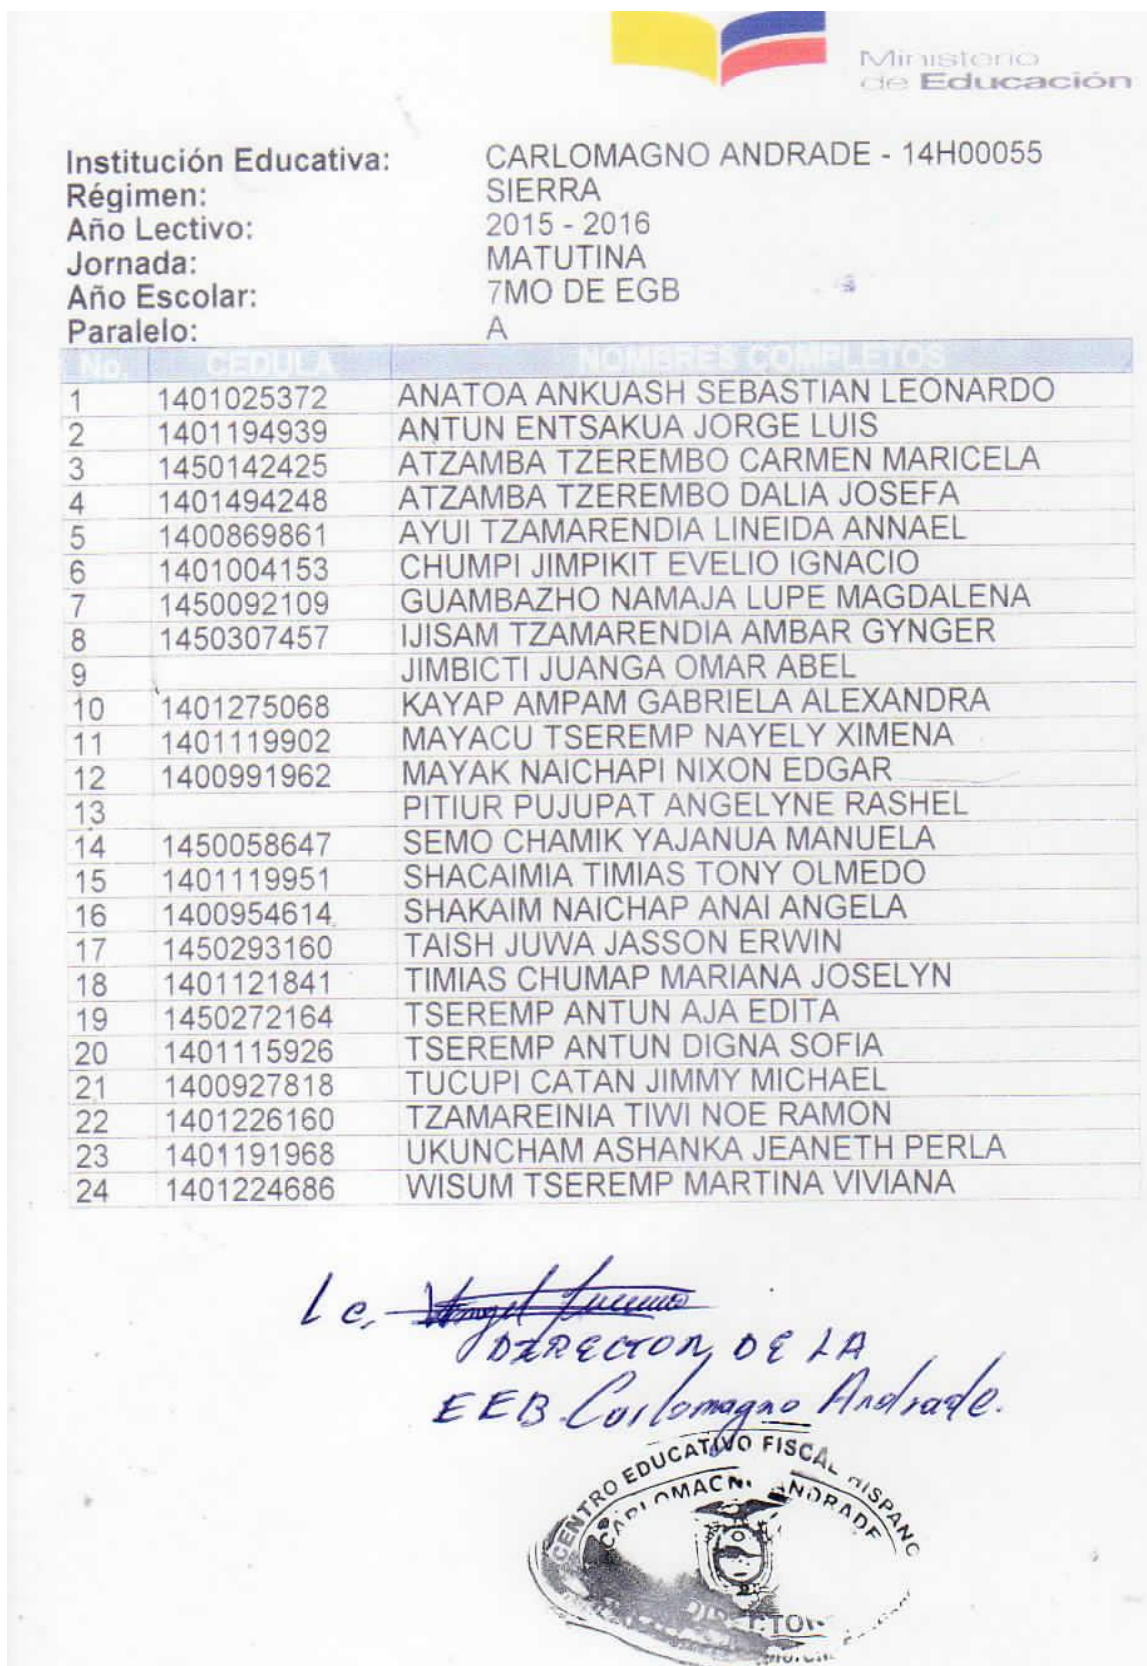 Ministerio
de Educación
Institución Educativa: CARLOMAGNO ANDRADE - 14H00055
Régimen: SIERRA
Año Lectivo: 2015 - 2016
Jornada: MATUTINA
Año Escolar: 7MO DE EGB
Paralelo: A
No. CEDULA NOMBRES COMPLETOS
1 1401025372 ANATOA ANKUASH SEBASTIAN LEONARDO
2 1401194939 ANTUN ENTSAKUA JORGE LUIS
3 1450142425 ATZAMBA TZEREMBO CARMEN MARICELA
4 1401494248 ATZAMBA TZEREMBO DALIA JOSEFA
5 1400869861 AYUI TZAMARENDIA LINEIDA ANNAEL
6 1401004153 CHUMPI JIMPIKIT EVELIO IGNACIO
7 1450092109 GUAMBAZHO NAMAJA LUPE MAGDALENA
8 1450307457 IJISAM TZAMARENDIA AMBAR GYNGER
9 JIMBICTI JUANGA OMAR ABEL
10 1401275068 KAYAP AMPAM GABRIELA ALEXANDRA
11 1401119902 MAYACU TSEREMP NAYELY XIMENA
12 1400991962 MAYAK NAICHAPI NIXON EDGAR
13 PITIUR PUJUPAT ANGELYNE RASHEL
14 1450058647 SEMO CHAMIK YAJANUA MANUELA
15 1401119951 SHACAIMIA TIMIAS TONY OLMEDO
16 1400954614 SHAKAIM NAICHAP ANAI ANGELA
17 1450293160 TAISH JUWA JASSON ERWIN
18 1401121841 TIMIAS CHUMAP MARIANA JOSELYN
19 1450272164 TSEREMP ANTUN AJA EDITA
20 1401115926 TSEREMP ANTUN DIGNA SOFIA
21 1400927818 TUCUPI CATAN JIMMY MICHAEL
22 1401226160 TZAMAREINIA TIWI NOE RAMON
23 1401191968 UKUNCHAM ASHANKA JEANETH PERLA
24 1401224686 WISUM TSEREMP MARTINA VIVIANA
Lc.
DIRECTOR DE LA
EEB. Carlomagno Andrade.
CENTRO EDUCATIVO FISCAL HISPANO
CARLOMAGNO ANDRADE